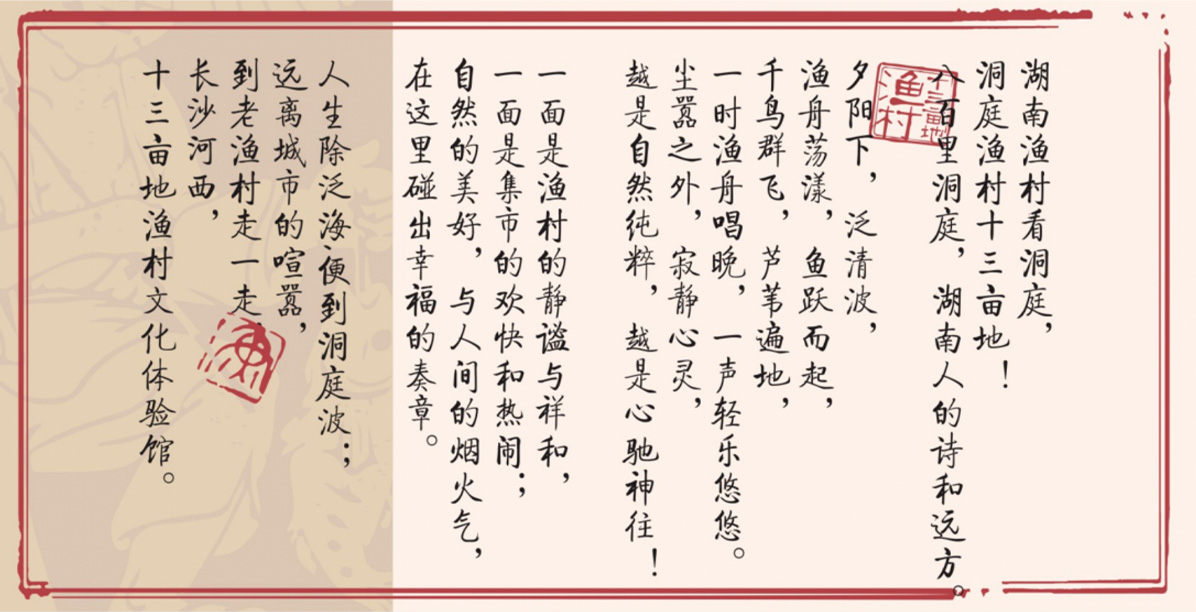 湖南渔村看洞庭，
洞庭渔村十三亩地！
八百里洞庭，湖南人的诗和远方。
夕阳下，泛清波，
渔舟荡漾，鱼跃而起，
千鸟群飞，芦苇遍地，
一时渔舟唱晚，一声轻乐悠悠。
尘嚣之外，寂静心灵，
越是自然纯粹，越是心驰神往！
一面是渔村的静谧与祥和，
一面是集市的欢快和热闹；
自然的美好，与人间的烟火气，
在这里碰出幸福的奏章。
人生除泛海便到洞庭波；
远离城市的喧嚣，
到老渔村走一走，
长沙河西，
十三亩地渔村文化体验馆。
十三亩地
渔村